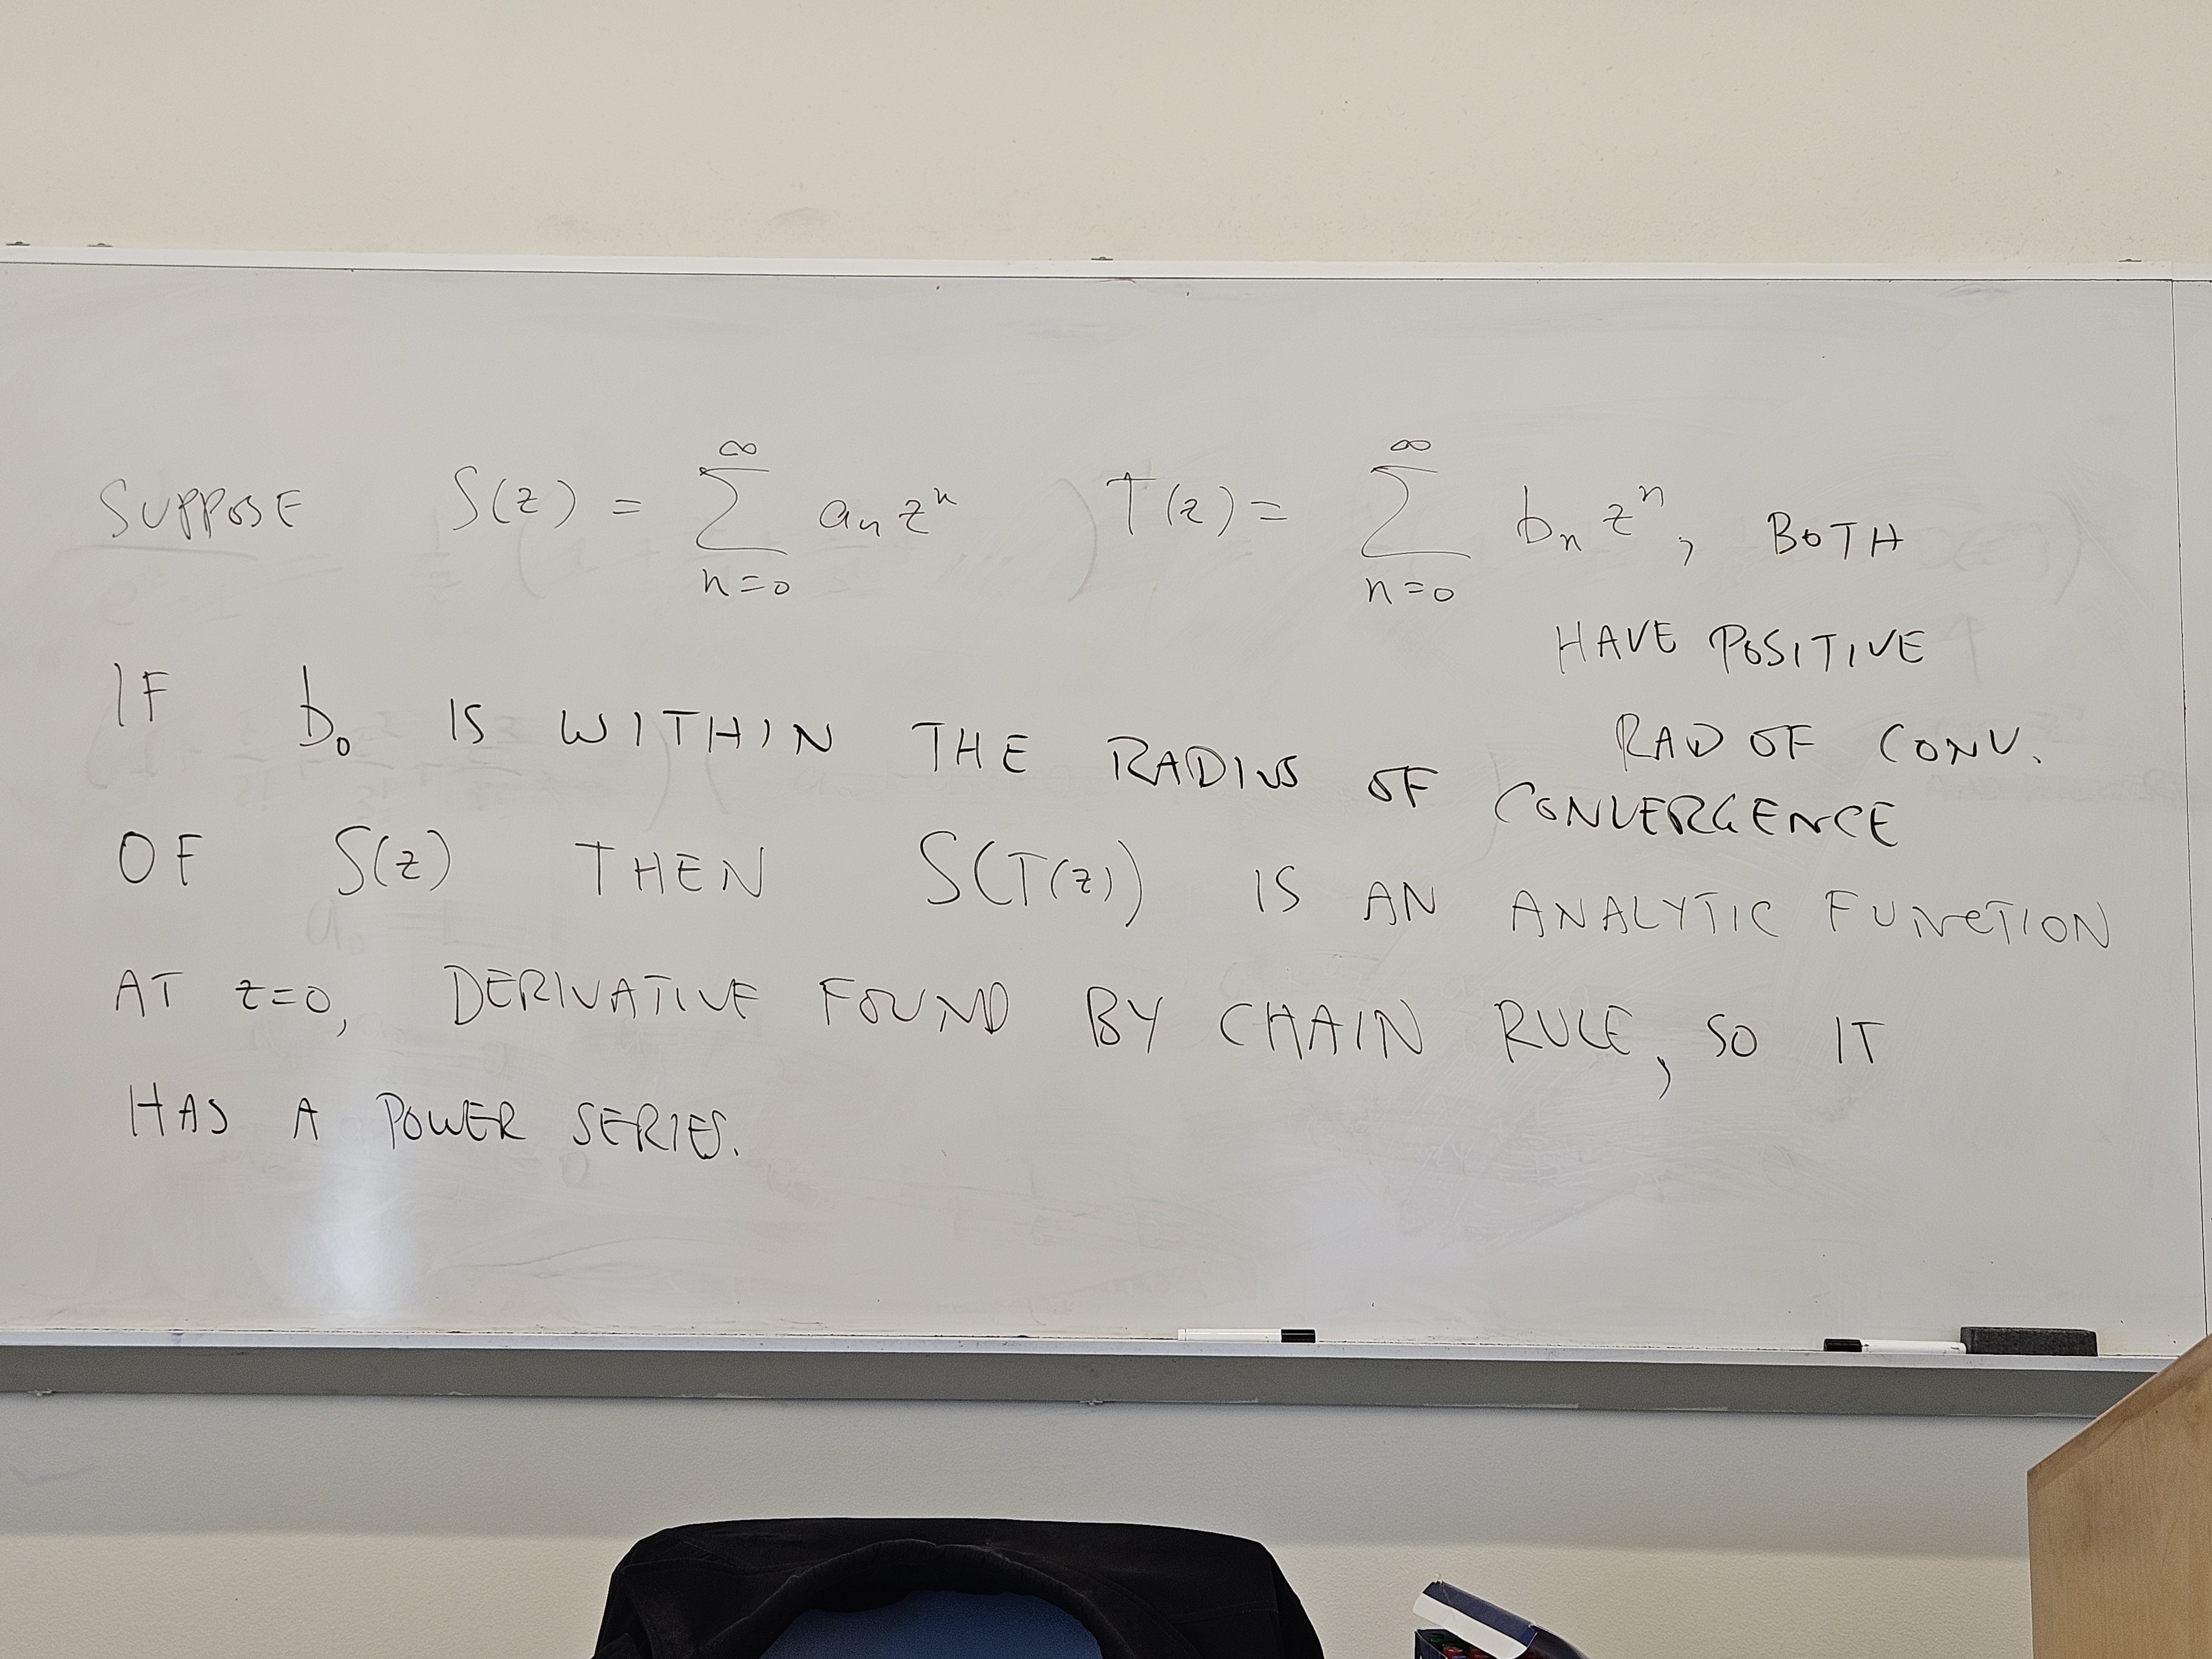 SUPPOSE S(z) = ∑_{n=0}^{∞} aₙ zⁿ T(z) = ∑_{n=0}^{∞} bₙ zⁿ, BOTH
HAVE POSITIVE
RAD OF CONV.
IF b₀ IS WITHIN THE RADIUS OF CONVERGENCE
OF S(z) THEN S(T(z)) IS AN ANALYTIC FUNCTION
AT z=0, DERIVATIVE FOUND BY CHAIN RULE, SO IT
HAS A POWER SERIES.